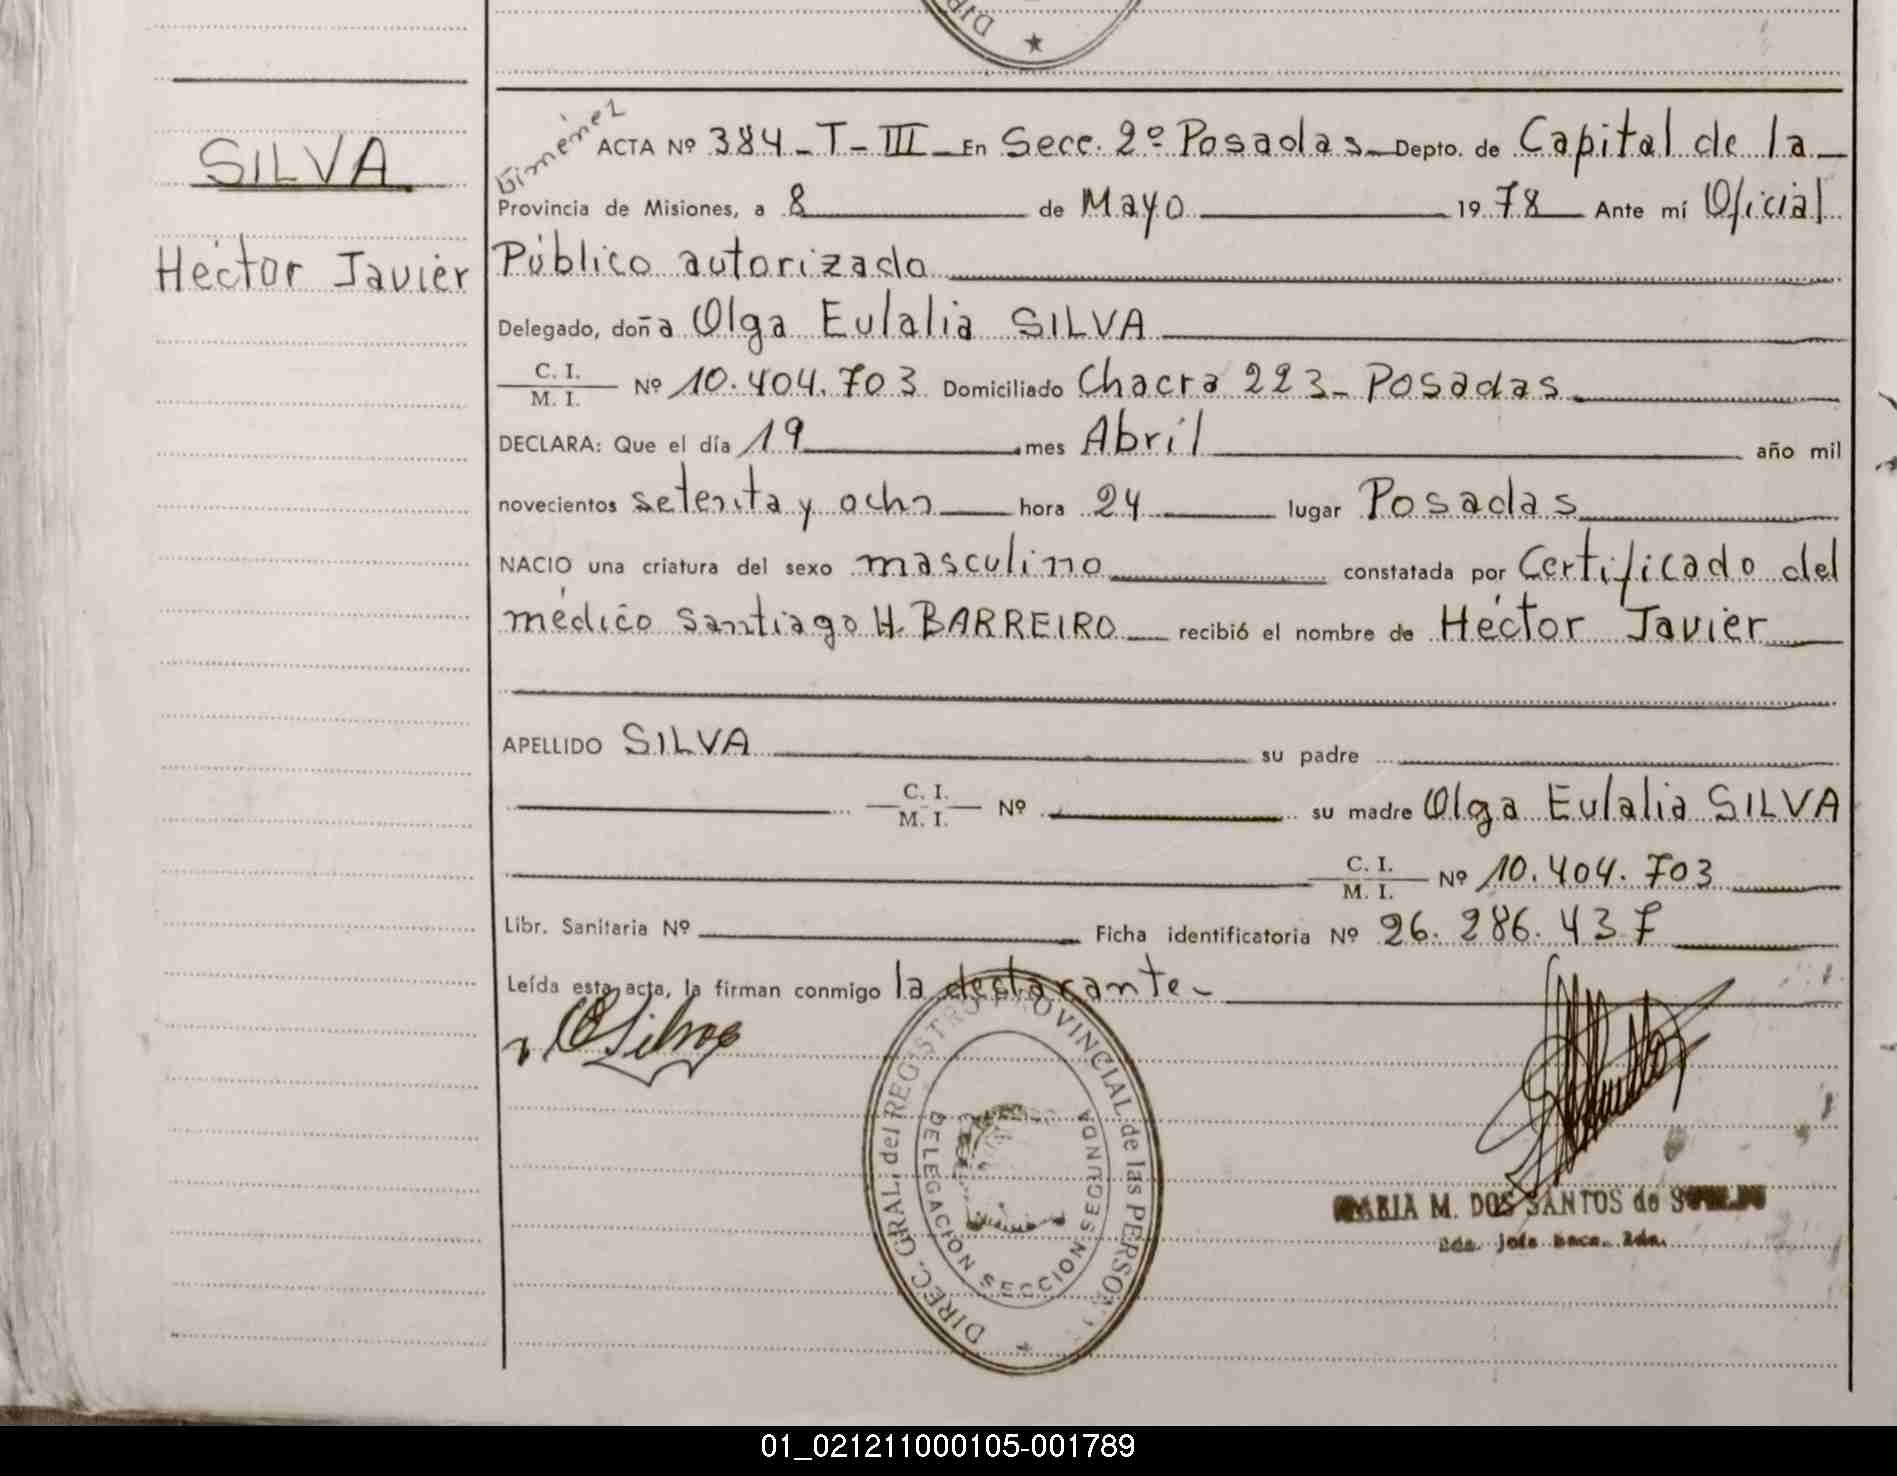 DIR
Giménez
SILVA
Héctor Javier
ACTA Nº 384 - T - III - En Secc. 2º Posadas - Depto. de Capital de la
Provincia de Misiones, a 8 de Mayo 1978 Ante mí Oficial
Público autorizado
Delegado, doña Olga Eulalia SILVA
C. I.
M. I. Nº 10.404.703 Domiciliado Chacra 223 - Posadas
DECLARA: Que el día 19 mes Abril año mil
novecientos setenta y ocho hora 24 lugar Posadas
NACIO una criatura del sexo masculino constatada por Certificado del
médico Santiago H. BARREIRO recibió el nombre de Héctor Javier
APELLIDO SILVA su padre
C. I.
M. I. Nº su madre Olga Eulalia SILVA
C. I.
M. I. Nº 10.404.703
Libr. Sanitaria Nº Ficha identificatoria Nº 26.286.437
Leída esta acta, la firman conmigo la declarante -
O Silva
DIREC. GRAL. del REGISTRO PROVINCIAL de las PERSONAS
DELEGACION SECCION SEGUNDA
MARIA M. DOS SANTOS de
2da. jefe Secc. 2da.
01_021211000105-001789